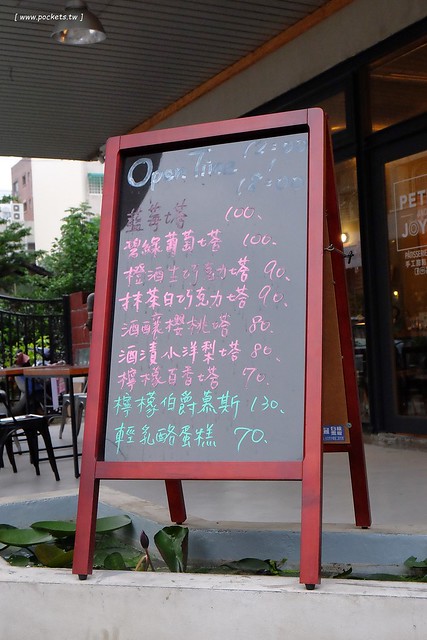 [ www.pockets.tw ]
Open Time 12:00
18:00
藍莓塔 100、
碧綠葡萄塔 100、
橙酒生巧克力塔 90、
抹茶白巧克力塔 90、
酒釀櫻桃塔 80、
酒漬小洋梨塔 80、
檸檬百香塔 70、
檸檬伯爵慕斯 130、
輕乳酪蛋糕 70、
PET
JOY